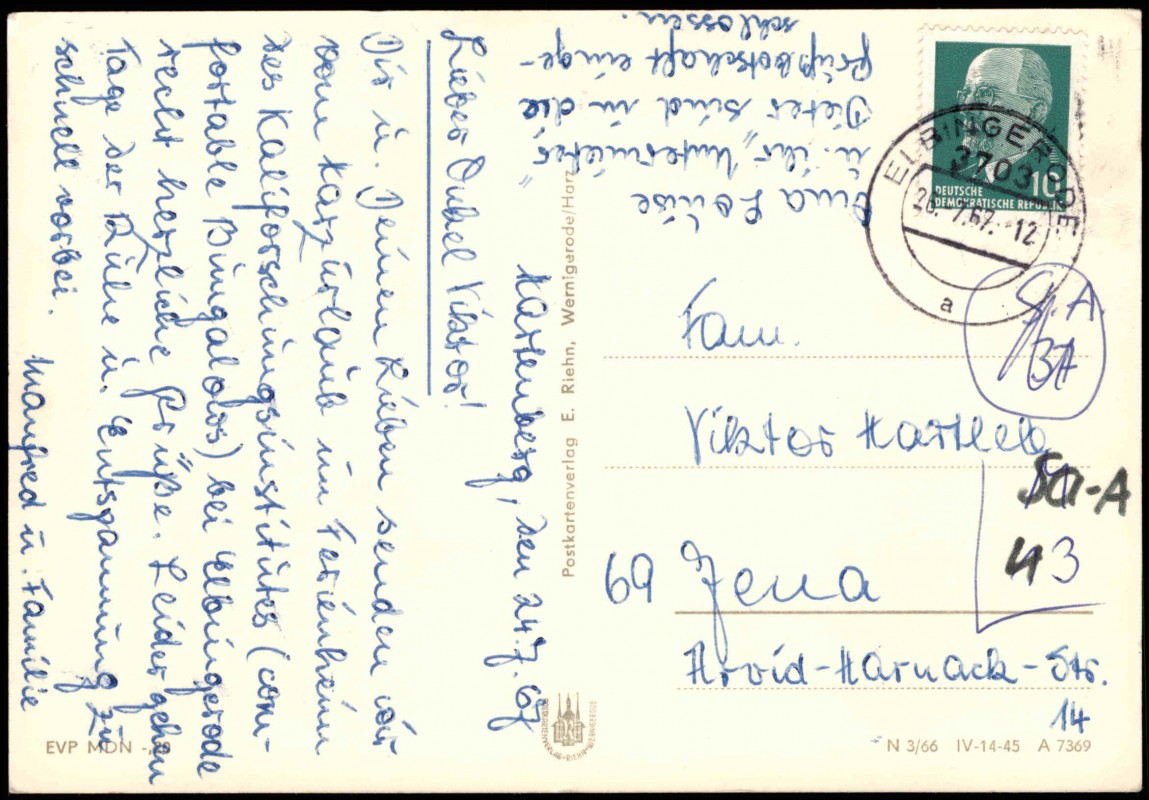 Hartenberg, den 24.7.67
Lieber Onkel Viktor!
Dir u. Deinen Lieben senden wir
vom Harzurlaub im Ferienheim
des Kaliforschungsinstitutes (com-
fortable Bungalows) bei Elbingerode
recht herzliche Grüße. Leider gehen
Tage der Ruhe u. Entspannung zu
schnell vorbei.
Manfred u. Familie
Oma Lohse
u. ihr „Untermieter"
Dieter sind in die
Grußbotschaft einge-
schlossen.
Fam.
Viktor Hartleb
69 Jena
Arvid-Harnack-Str.
14
ELBINGERODE
3703
7.67.-12
a
10
DEUTSCHE
DEMOKRATISCHE REPUBLIK
3A
43
Postkartenverlag E. Riehn, Wernigerode/Harz
EVP MDN -,20
N 3/66 IV-14-45 A 7369